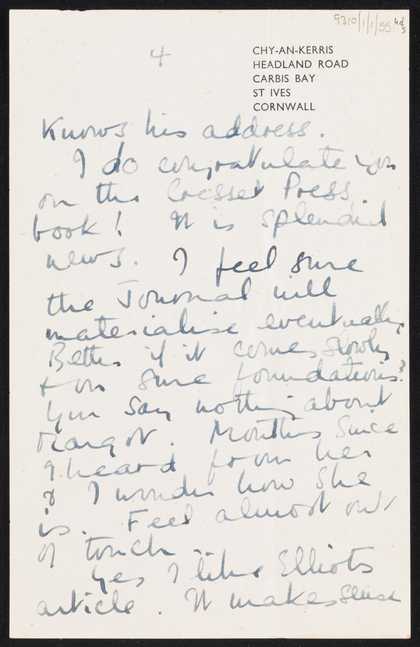 9310/1/1/55
4
CHY-AN-KERRIS
HEADLAND ROAD
CARBIS BAY
ST IVES
CORNWALL
knows his address.
I do congratulate you
on the Cresset Press
book! It is splendid
news. I feel sure
the Journal will
materialise eventually
Better if it comes slowly
& on sure foundations.
You say nothing about
Margot. Months since
I heard from her
& I wonder how she
is. Feel almost out
of touch.
Yes I like Elliots
article. It makes sense